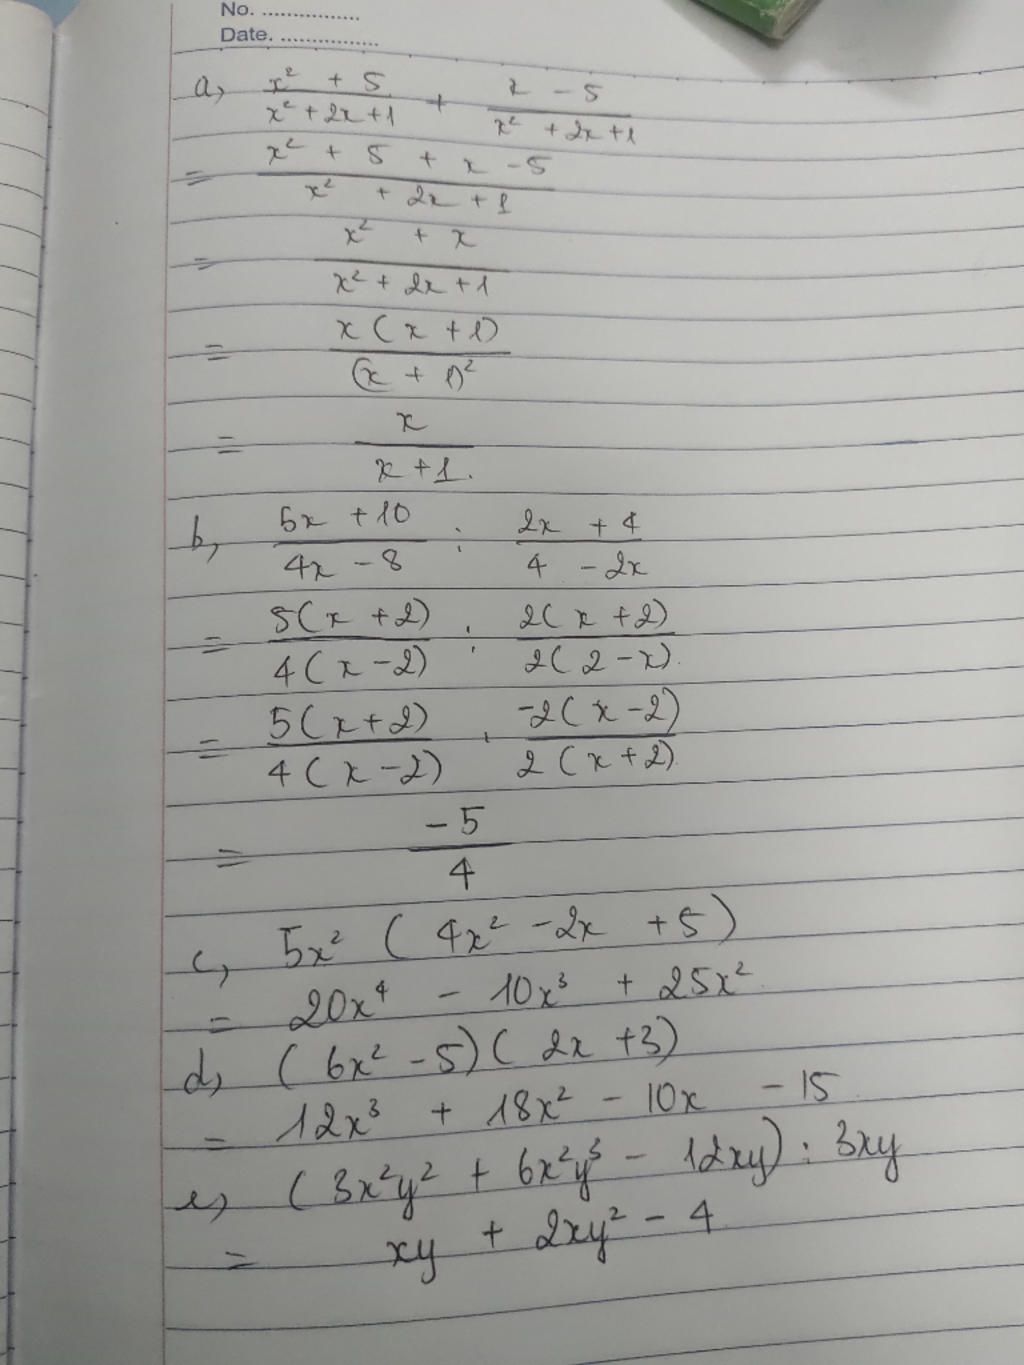 No. ................
Date. ................
a, (x² + 5)/(x² + 2x + 1) + (x - 5)/(x² + 2x + 1)
= (x² + 5 + x - 5)/(x² + 2x + 1)
= (x² + x)/(x² + 2x + 1)
= x(x + 1)/(x + 1)²
= x/(x + 1).
b, (5x + 10)/(4x - 8) : (2x + 4)/(4 - 2x)
= 5(x + 2)/4(x - 2) : 2(x + 2)/2(2 - x).
= 5(x + 2)/4(x - 2) . -2(x - 2)/2(x + 2).
= -5/4
c, 5x² (4x² - 2x + 5)
= 20x⁴ - 10x³ + 25x².
d, (6x² - 5)(2x + 3)
= 12x³ + 18x² - 10x - 15.
e, (3x²y² + 6x²y³ - 12xy) : 3xy
= xy + 2xy² - 4.